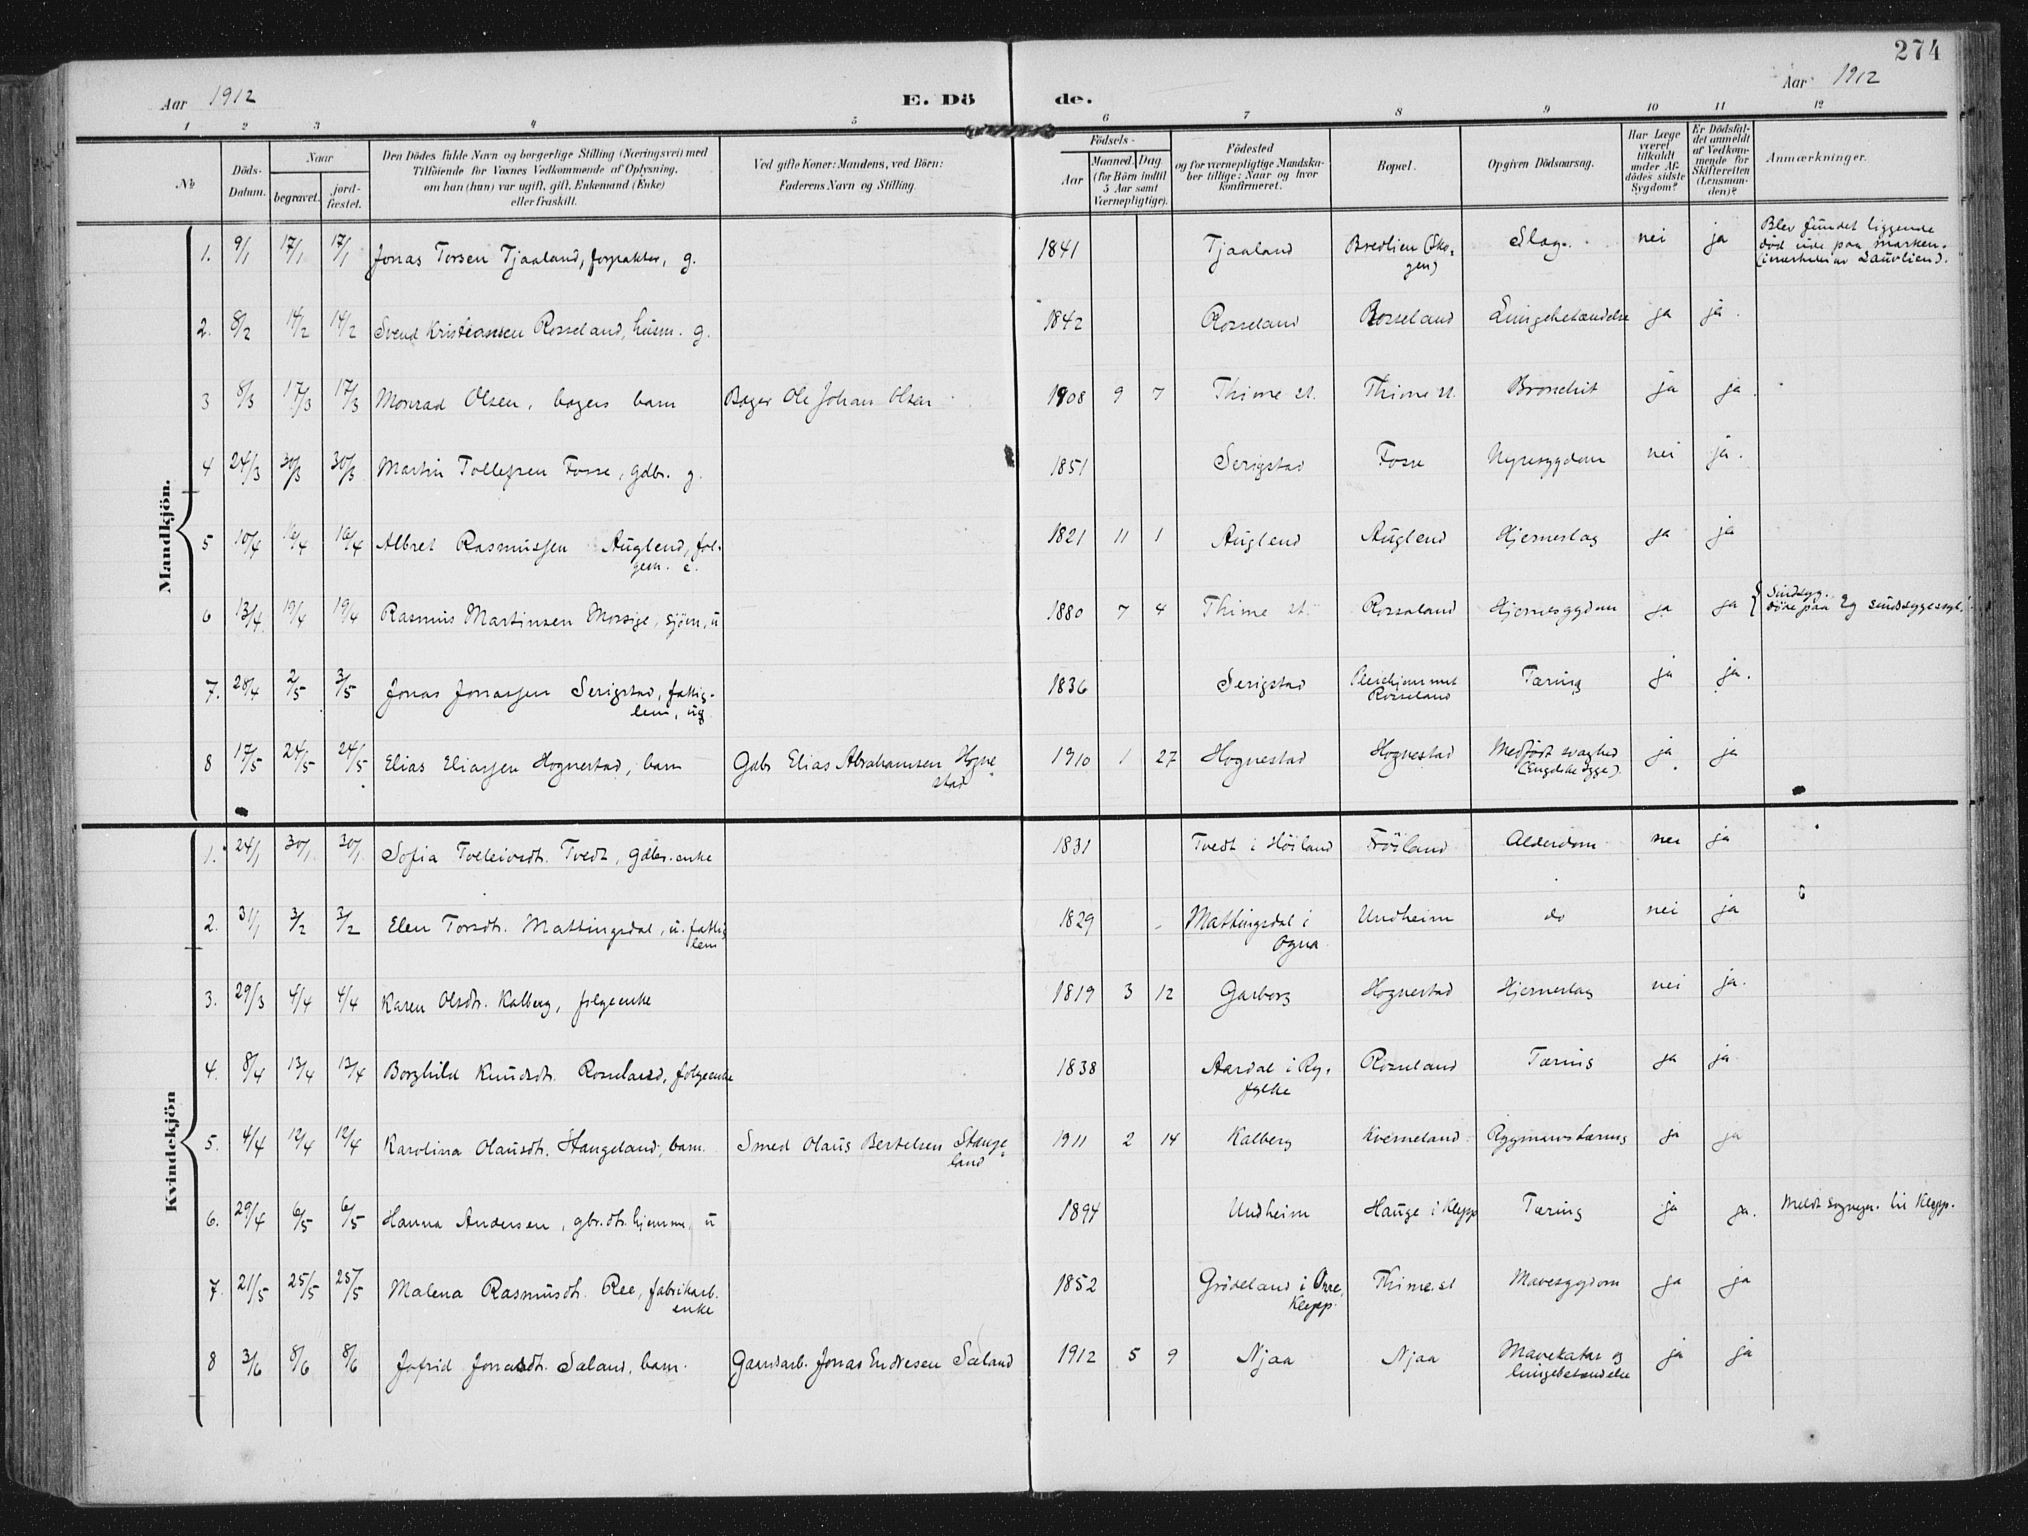 274
Aar 1912
E. Döde.
Aar 1912
1 2 3 4 5 6 7 8 9 10 11 12
No
Döds-Datum.
Naar
begravet.
jordfæstet.
Den Dödes fulde Navn og borgerlige Stilling (Næringsvei) med
Tilföiende for Voxnes Vedkommende af Oplysning,
om han (hun) var ugift, gift, Enkemand (Enke)
eller fraskilt.
Ved gifte Koner: Mandens, ved Börn:
Faderens Navn og Stilling.
Födsels-
Aar
Maaned Dag
(for Börn indtil
5 Aar samt
Værnepligtige).
Födested
og for værnepligtige Mandska-
ber tillige: Naar og hvor
konfirmeret.
Bopæl.
Opgiven Dödsaarsag.
Har Læge
været
tilkaldt
under Af-
dödes sidste
Sygdom?
Er Dödsfal-
det anmeldt
af Vedkom-
mende for
Skifteretten
(Lensman-
den)?
Anmærkninger.
Mandkjön.
1. 9/1 17/1 17/1 Jonas Torsen Tjaaland, forpakter, g. 1841 Tjaaland Bredlien (Sko-
gen) Slag. nei ja Blev fundet liggende
död ude paa marken.
(i nærheden av Lauvlien).
2. 8/2 14/2 14/2 Svend Kristiansen Rosseland, husm. g. 1842 Rosseland Rosseland Lungebetændelse ja ja.
3 8/3 17/3 17/3 Monrad Olsen, bagers barn Bager Ole Johan Olsen 1908 9 7 Thime st. Thime st. Bronchit ja ja.
4 24/3 30/3 30/3 Martin Tollefsen Fosse, gdbr. g. 1851 Serigstad Fosse Nyresygdom nei ja.
5 10/4 16/4 16/4 Albret Rasmussen Auglend, fol-
gem. e. 1821 11 1 Auglend Auglend Hjerneslag ja ja
6 13/4 19/4 19/4 Rasmus Martinsen Mossige, sjöm, u 1880 7 4 Thime st. Rosseland Hjernesygdom ja ja Sindsyg.
döde paa Eg sindssygeasyl.
7. 28/4 2/5 3/5 Jonas Jonassen Serigstad, fattig-
lem, ug. 1836 Serigstad Pleiehjemmet
Rosseland Tæring ja ja.
8 17/5 24/5 24/5 Elias Eliassen Hognestad, barn Gdbr Elias Abrahamsen Hogne-
stad 1910 1 27 Hognestad Hognestad Medfödt svaghed
(Engelske syge) ja ja
Kvindekjön
1. 24/1 30/1 30/1 Sofia Tolleivsdt. Tvedt, gdbr.enke 1831 Tvedt i Höiland Fröiland Alderdom nei ja
2. 31/1 3/2 3/2 Elen Torsdt. Mattingsdal, u. fattig
lem 1829 Mattingsdal i
Ogna Undheim do nei ja
3. 29/3 4/4 4/4 Karen Olsdt. Kalberg, folgeenke 1819 3 12 Garborg Hognestad Hjerneslag nei ja.
4. 8/4 13/4 13/4 Borghild Knudsdt. Rosseland, folgeenke 1838 Aardal i Ry-
fylke Rosseland Tæring ja ja
5. 4/4 12/4 12/4 Karolina Olausdt. Stangeland, barn. Smed Olaus Bertelsen Stange-
land 1911 2 14 Kalberg Kverneland Rygmarvstæring ja ja
6. 29/4 6/5 6/5 Hanna Andersen, gbr.dt. hjemme, u 1894 Undheim Hauge i Klepp Tæring ja ja. Meldt sognepr. til Klepp.
7. 21/5 25/5 25/5 Malena Rasmusdt. Ree, fabrikarb.
enke 1852 Grödeland i Övre,
Klepp. Thime.st Mavesygdom ja ja
8 3/6 8/6 8/6 Jofrid Jonasdt. Sæland, barn. Gaardarb. Jonas Endresen Sæland 1912 5 9 Njaa Njaa Mavekatar og
lungebetændelse ja ja